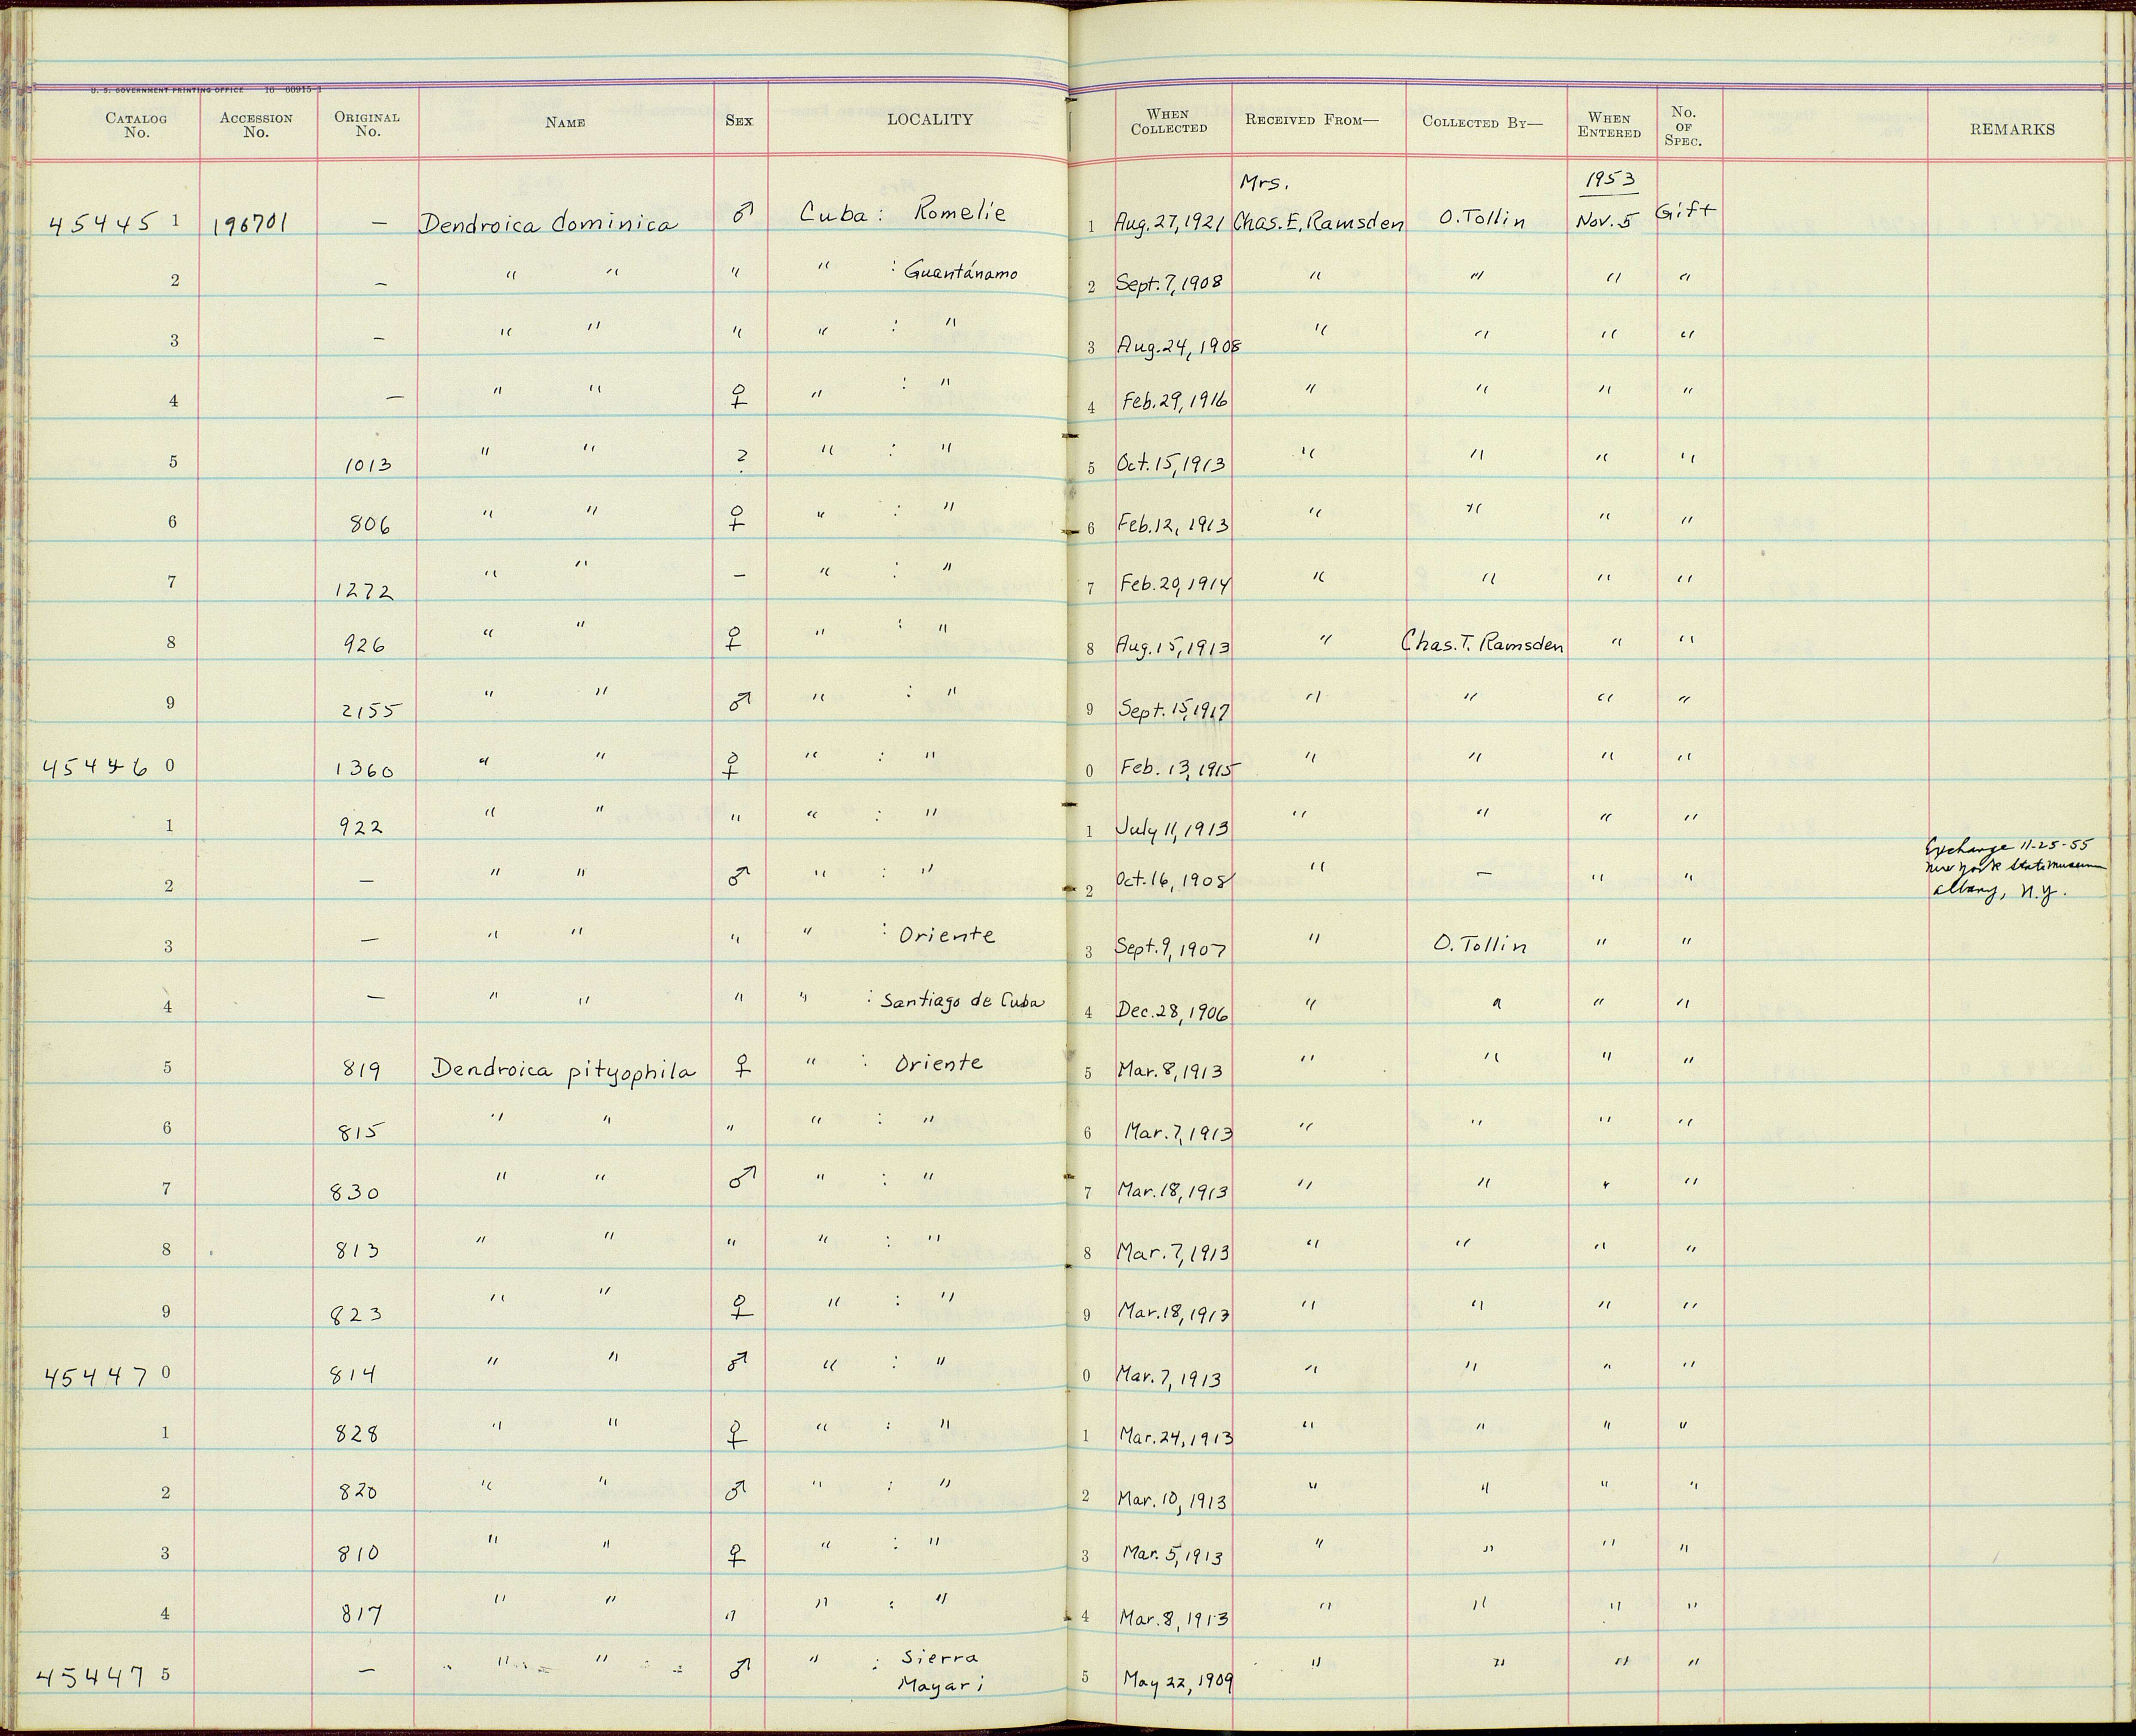 U. S. GOVERNMENT PRINTING OFFICE 16—60915-1
CATALOG No. ACCESSION No. ORIGINAL No. NAME SEX LOCALITY WHEN COLLECTED RECEIVED FROM— COLLECTED BY— WHEN ENTERED No. OF SPEC. REMARKS
Mrs. 1953
45445 1 196701 — Dendroica dominica ♂ Cuba: Romelie 1 Aug. 27, 1921 Chas. E. Ramsden O. Tollin Nov. 5 Gift
2 — " " " " : Guantánamo 2 Sept. 7, 1908 " " " "
3 — " " " " : " 3 Aug. 24, 1908 " " " "
4 — " " ♀ " : " 4 Feb. 29, 1916 " " " "
5 1013 " " ? " : " 5 Oct. 15, 1913 " " " "
6 806 " " ♀ " : " 6 Feb. 12, 1913 " " " "
7 1272 " " — " : " 7 Feb. 20, 1914 " " " "
8 926 " " ♀ " : " 8 Aug. 15, 1913 " Chas. T. Ramsden " "
9 2155 " " ♂ " : " 9 Sept. 15, 1917 " " " "
45446 0 1360 " " ♀ " : " 0 Feb. 13, 1915 " " " "
1 922 " " " " : " 1 July 11, 1913 " " " "
Exchange 11-25-55
New York State Museum
2 — " " ♂ " : " 2 Oct. 16, 1908 " — " " Albany, N.Y.
3 — " " " " : Oriente 3 Sept. 9, 1907 " O. Tollin " "
4 — " " " " : Santiago de Cuba 4 Dec. 28, 1906 " " " "
5 819 Dendroica pityophila ♀ " : Oriente 5 Mar. 8, 1913 " " " "
6 815 " " " " : " 6 Mar. 7, 1913 " " " "
7 830 " " ♂ " : " 7 Mar. 18, 1913 " " " "
8 813 " " " " : " 8 Mar. 7, 1913 " " " "
9 823 " " ♀ " : " 9 Mar. 18, 1913 " " " "
45447 0 814 " " ♂ " : " 0 Mar. 7, 1913 " " " "
1 828 " " ♀ " : " 1 Mar. 24, 1913 " " " "
2 820 " " ♂ " : " 2 Mar. 10, 1913 " " " "
3 810 " " ♀ " : " 3 Mar. 5, 1913 " " " "
4 817 " " " " : " 4 Mar. 8, 1913 " " " "
45447 5 — " " ♂ " : Sierra 5 May 22, 1909 " " " "
Mayari